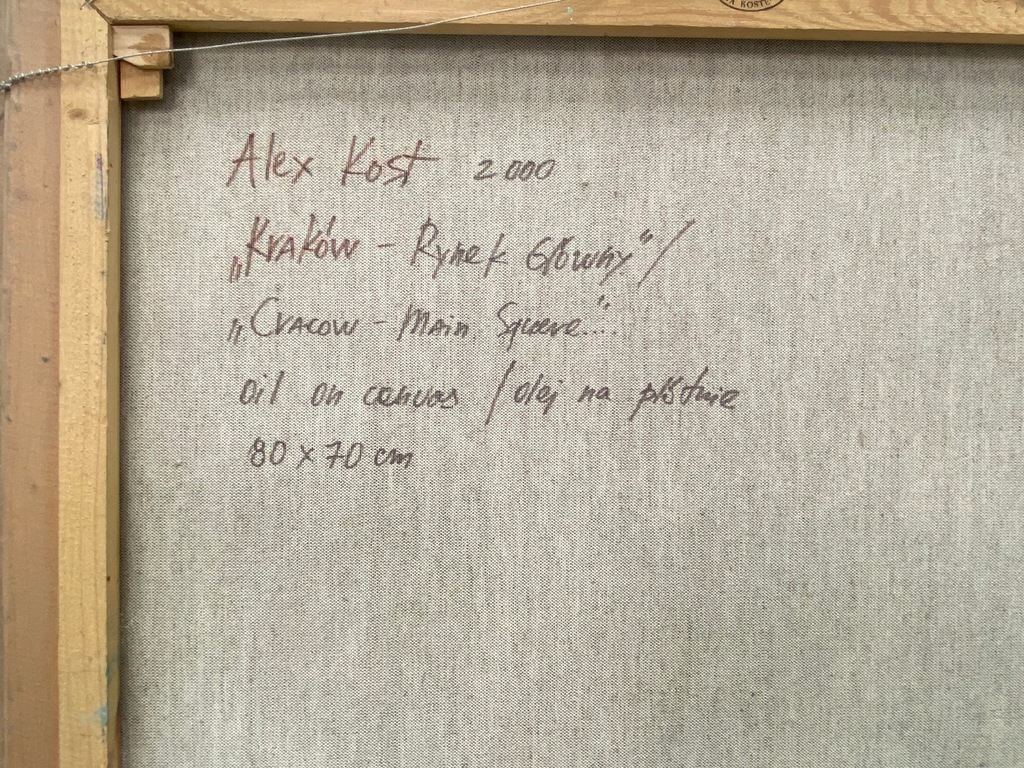 KOSTE
Alex Kost 2000
„Kraków – Rynek Główny"/
„Cracow – Main Square"
oil on canvas / olej na płótnie
80 x 70 cm